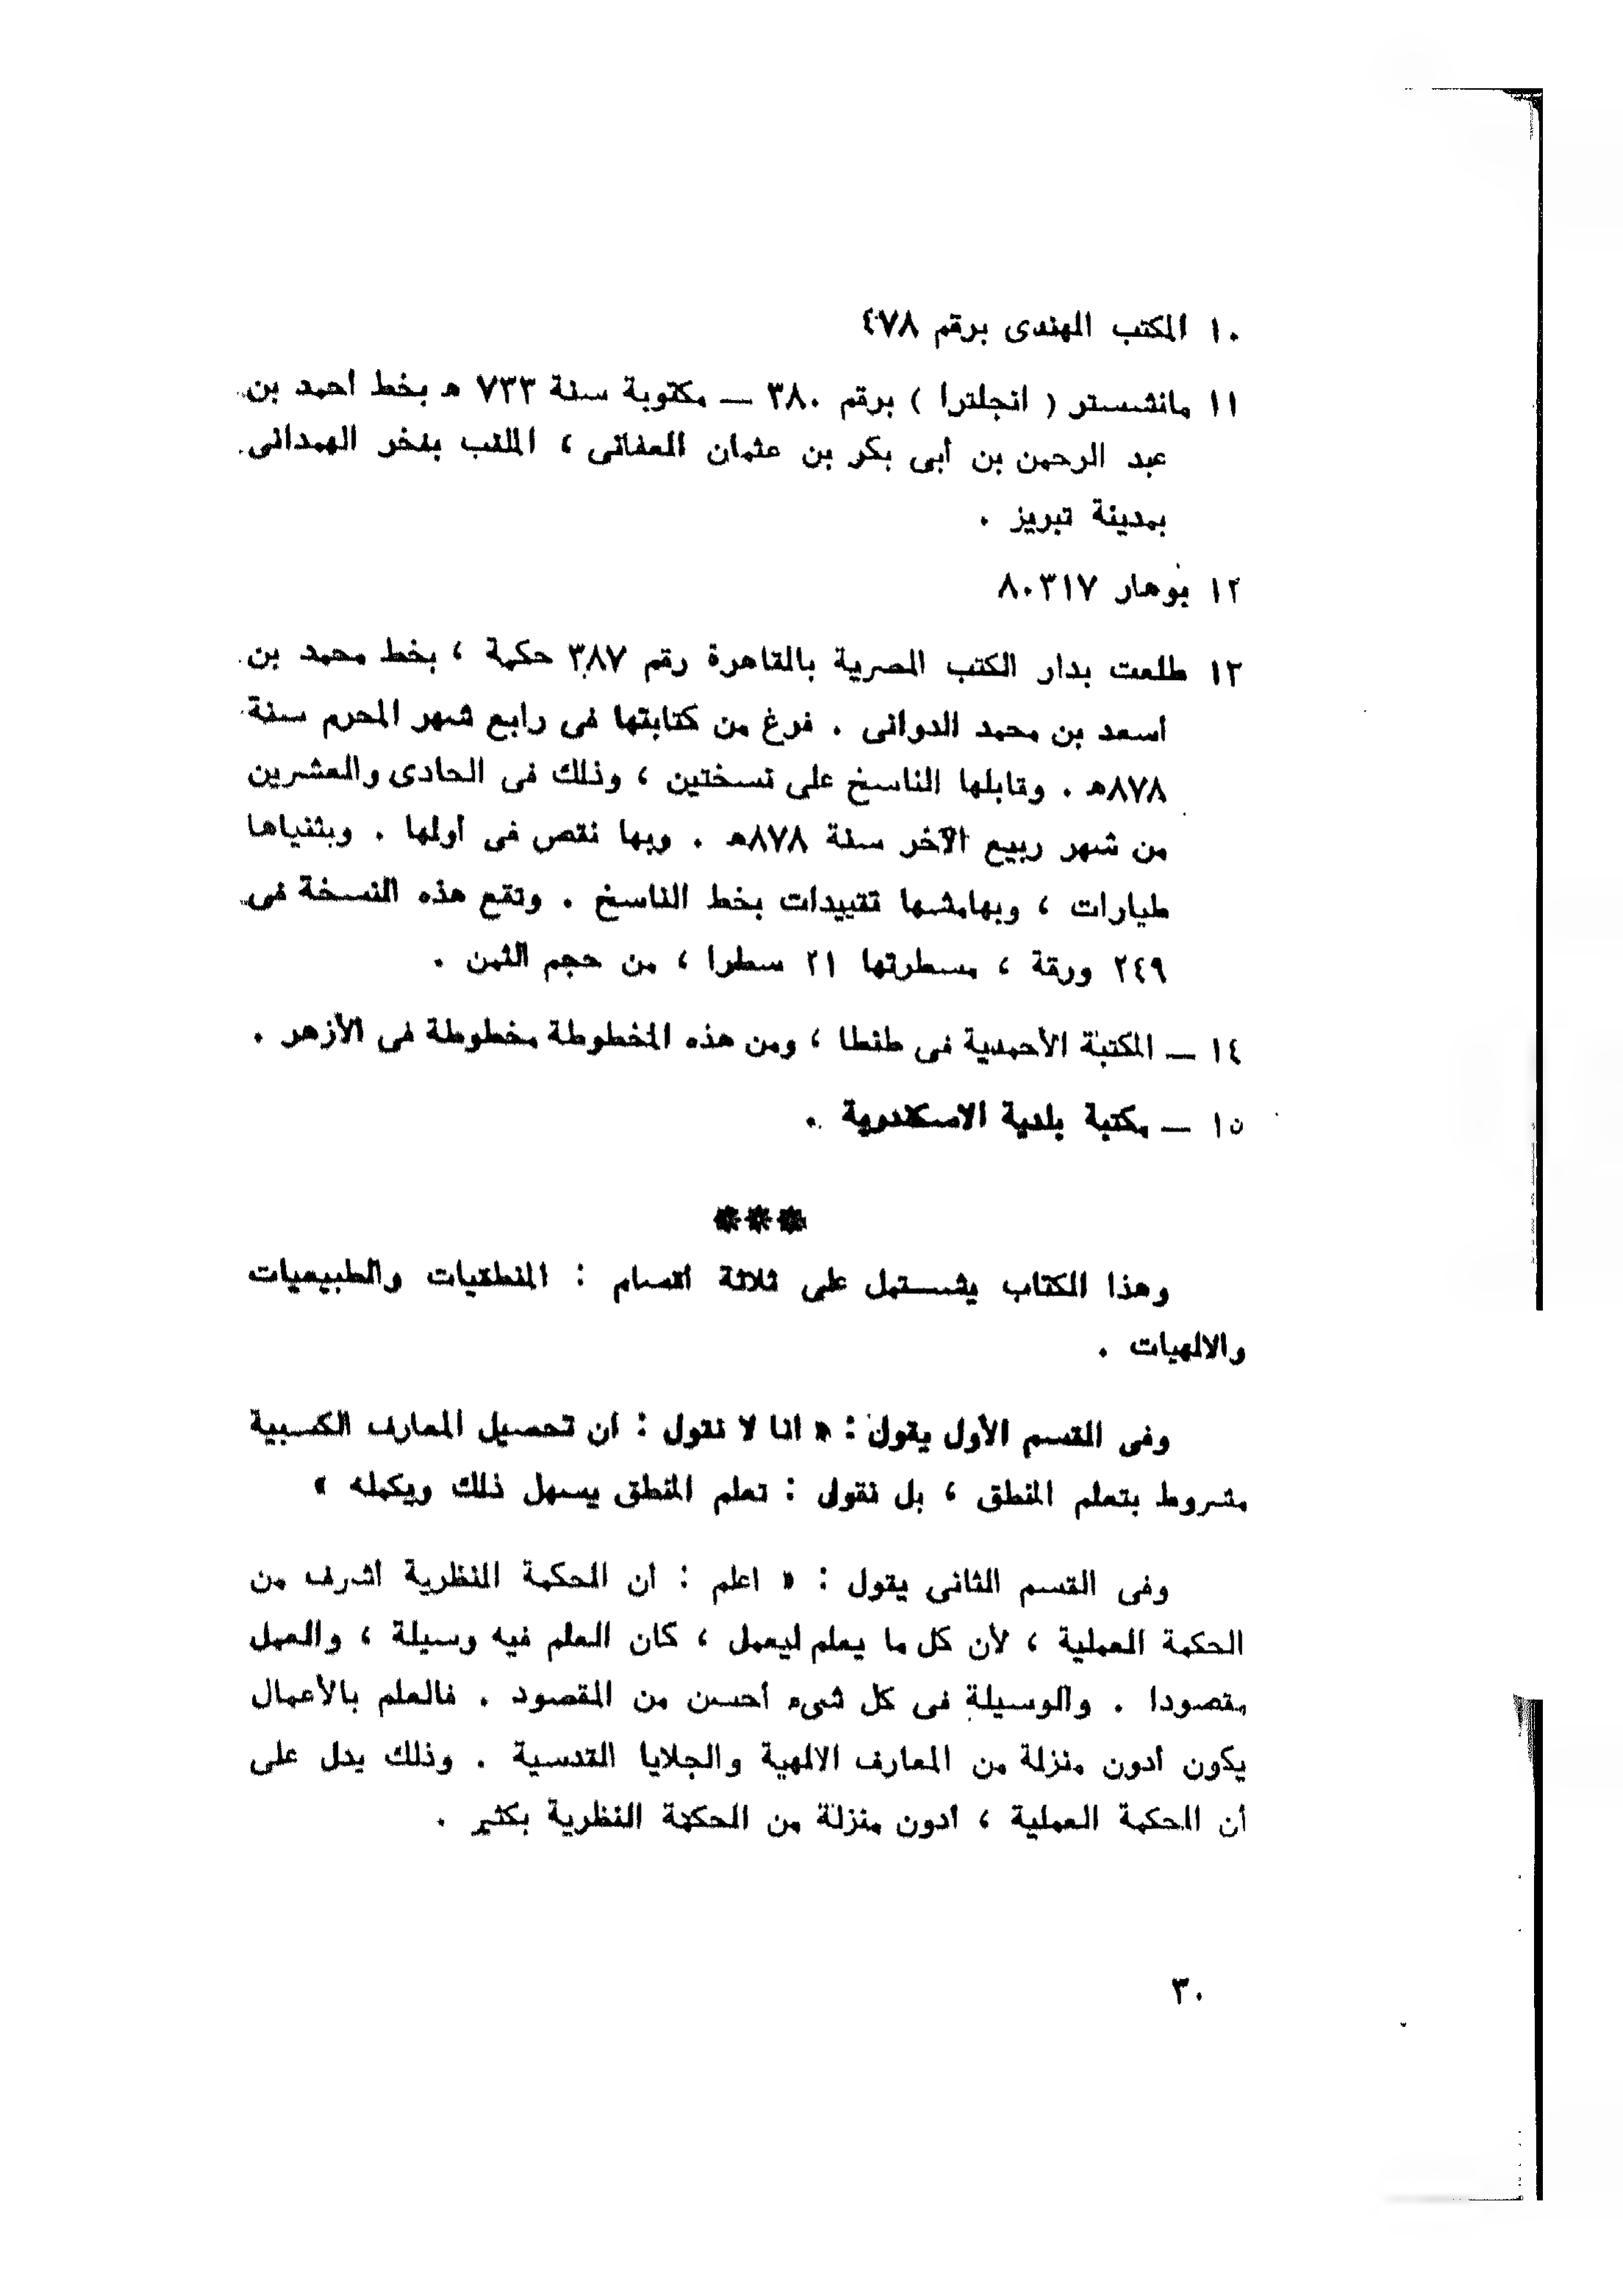 ١٠ المكتب الهندى برقم ٤٧٨
١١ مانشستر ( انجلترا ) برقم ٣٨٠ — مكتوبة سنة ٧٣٣ ه بخط أحمد بن
عبد الرحمن بن أبى بكر بن عثمان العفانى ، الملقب بفخر الهمدانى
بمدينة تبريز .
١٢ بوهار ٨٠٣١٧
١٣ طلعت بدار الكتب المصرية بالقاهرة رقم ٣٨٧ حكمة ، بخط محمد بن
أسعد بن محمد الدوانى . فرغ من كتابتها فى رابع شهر المحرم سنة
٨٧٨ه . وقابلها الناسخ على نسختين ، وذلك فى الحادى والعشرين
من شهر ربيع الآخر سنة ٨٧٨ه . وبها نقص فى أولها . وبثنياها
طيارات ، وبهامشها تقييدات بخط الناسخ . وتقع هذه النسخة فى
٢٤٩ ورقة ، مسطرتها ٢١ سطرا ، من حجم الثمن .
١٤ — المكتبة الأحمدية فى طنطا ، ومن هذه المخطوطة مخطوطة فى الأزهر .
١٥ — مكتبة بلدية الاسكندرية .
***
وهذا الكتاب يشتمل على ثلاثة أقسام : المنطقيات والطبيعيات
والالهيات .
وفى القسم الأول يقول : « انا لا نقول : ان تحصيل المعارف الكسبية
مشروط بتعلم المنطق ، بل نقول : تعلم المنطق يسهل ذلك ويكمله »
وفى القسم الثانى يقول : « اعلم : أن الحكمة النظرية أشرف من
الحكمة العملية ، لأن كل ما يعلم ليعمل ، كان العلم فيه وسيلة ، والعمل
مقصودا . والوسيلة فى كل شىء أحسن من المقصود . فالعلم بالأعمال
يكون أدون منزلة من المعارف الالهية والجلايا القدسية . وذلك يدل على
أن الحكمة العملية ، أدون منزلة من الحكمة النظرية بكثير .
٣٠